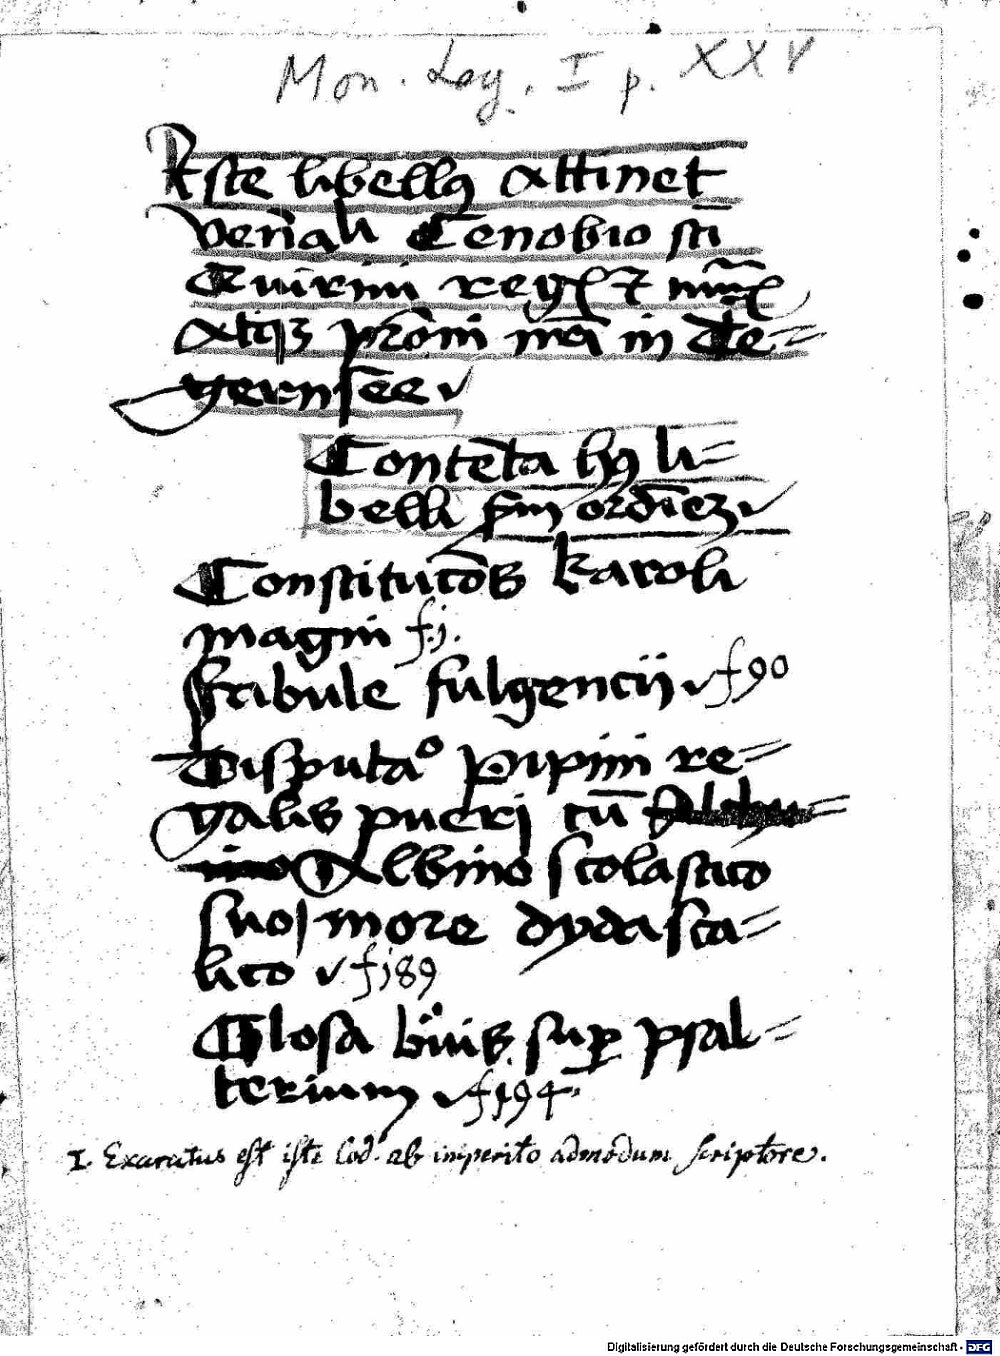 Mon. Leg. I p. XXV
Iste libellus Attinet
ven'ali Cenobio sti
Quirini regis et
Atque in Te=
gernsee
Contenta hus li=
belli scdm ordinem
Constitucōes karoli
magni f. 1.
Fabule fulgencii f 90
Disputao Pipini re=
galis pueri cū
Albino scolastico
suo more dydasca=
lico f 189
Glosa brevis super psal=
terium f 194.
I. Exaratus est iste Cod. ab imperito admodum scriptore.
Digitalisierung gefördert durch die Deutsche Forschungsgemeinschaft - DFG